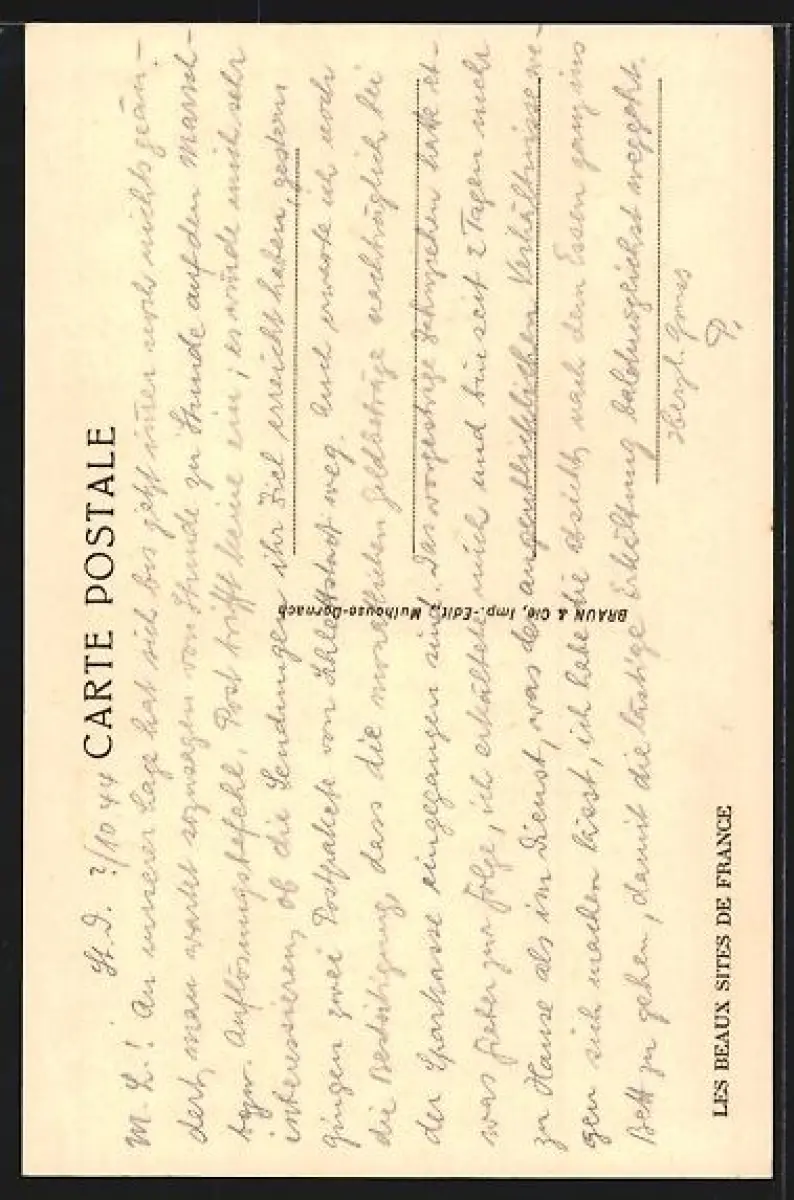 CARTE POSTALE
St. D. 2/10 44
M. L.! An unserer Lage hat sich bis jetzt immer noch nichts geän-
dert, man wartet sozusagen von Stunde zu Stunde auf den Marsch-
bezw. Auflösungsbefehl. Post trifft keine ein; es würde mich sehr
interessieren, ob die Sendungen ihr Ziel erreicht haben, gestern
gingen zwei Postpakete von Schlettstadt weg. Auch erwarte ich noch
die Bestätigung, dass die monatlichen Geldbeträge nachträglich bei
der Sparkasse eingegangen sind. Das vorgestrige hatte et-
was Fieber zur Folge, ich erkältete mich und bin seit 2 Tagen mehr
zu Hause als im Dienst, was die augenblicklichen Verhältnisse we-
gen sich machen lässt, ich habe die Absicht, nach dem Essen ganz ins
Bett zu gehen, damit die lästige Erkältung baldmöglichst weggeht.
Herzl. Gruss
P.
BRAUN & Cie, Imp.-Edit., Mulhouse-Dornach
LES BEAUX SITES DE FRANCE